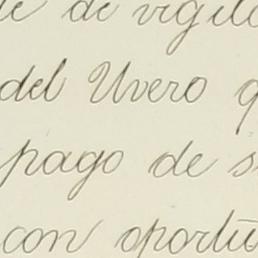 de vigil
del Uvero
pago de s
con oportu